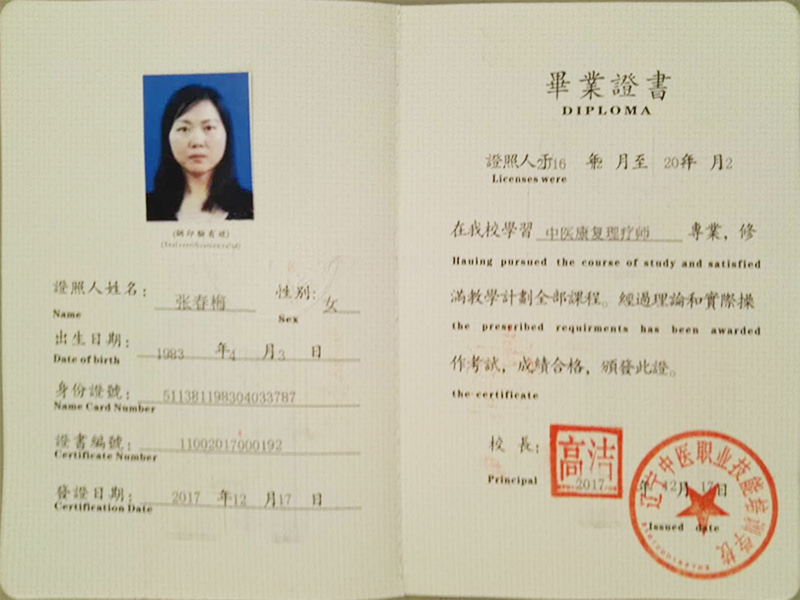 (鋼印驗有效)
證照人姓名:
张春梅
性别:
女
Name
Sex
出生日期:
1983 年 4 月 3 日
Date of birth
身份證號:
511381198304033787
Name Card Number
證書編號:
11002017000192
Certificate Number
發證日期:
2017 年 12 月 17 日
Certification Date
畢業證書
DIPLOMA
證照人于2016 年 2 月至 20 年 月2
Licenses were
在我校學習 中医康复理疗师 專業,修
Hauing pursued the course of study and satisfied
滿教學計劃全部課程。經過理論和實際操
the prescribed requirments has been awarded
作考試,成績合格,頒發此證。
the certificate
校長:
高洁
Principal
2017 年 12月 17日
Issued date
辽宁中医职业技能培训学校